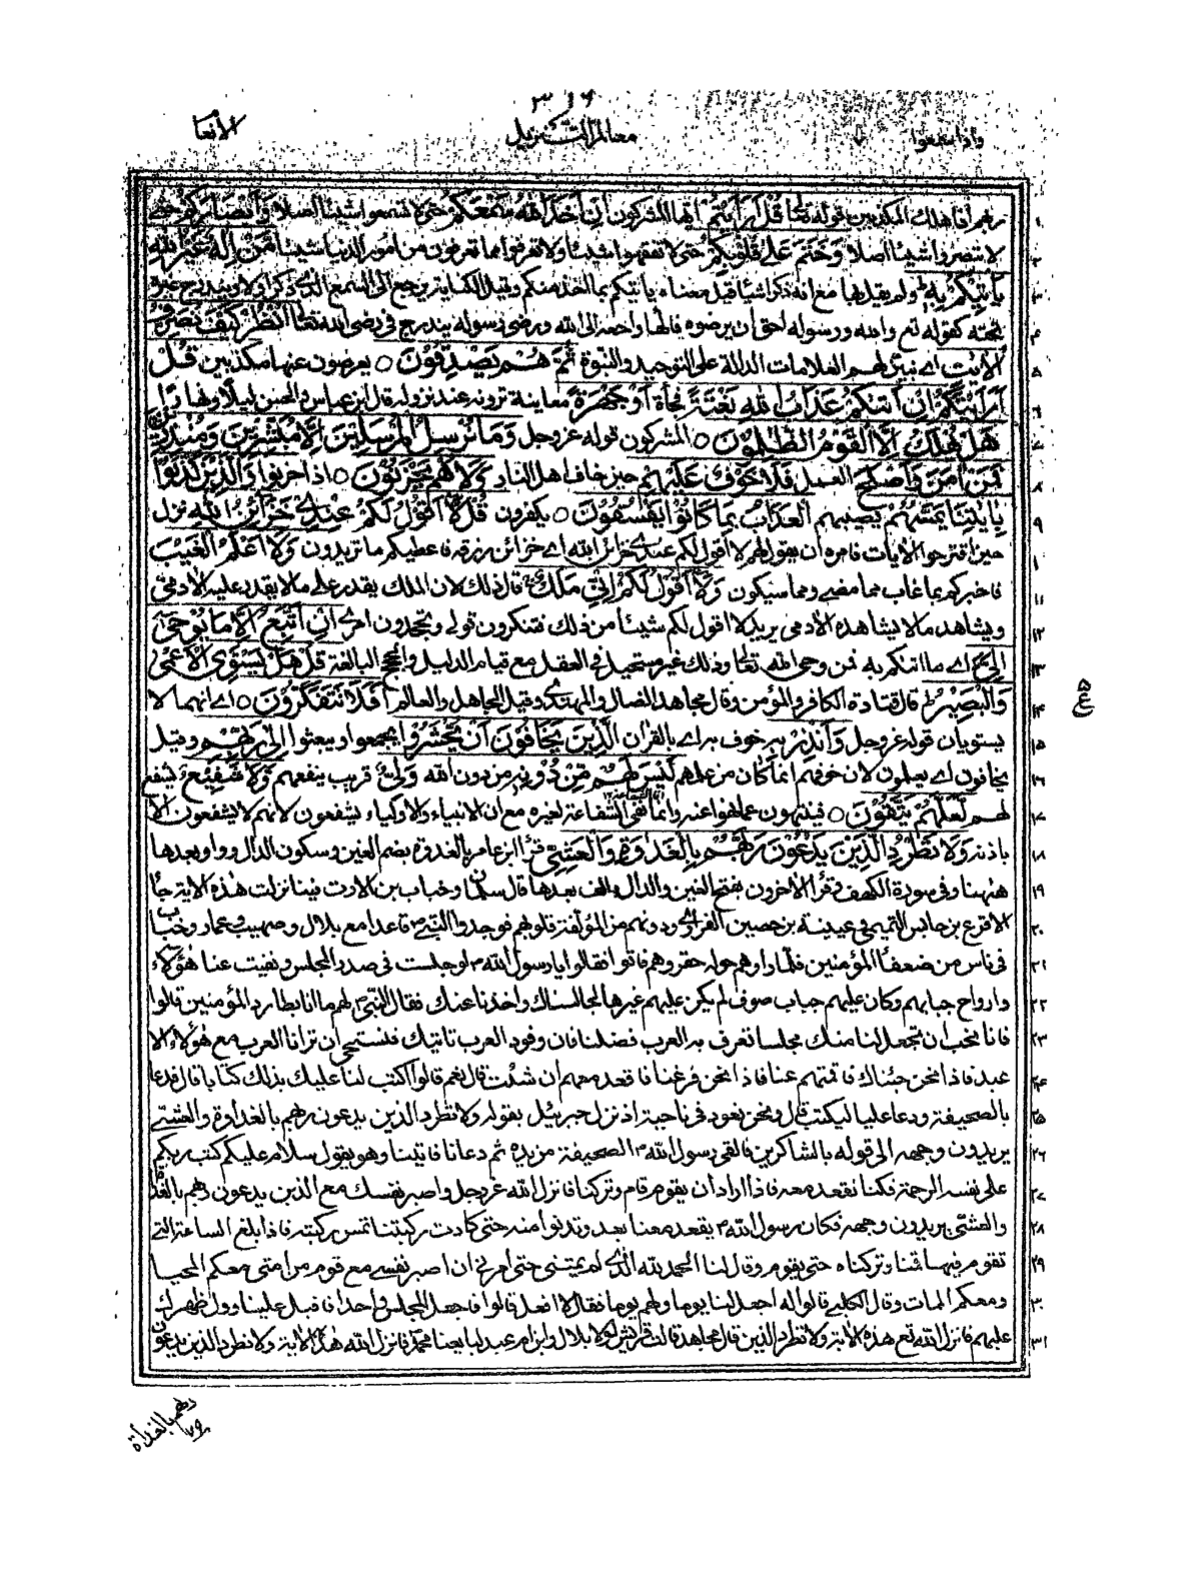 ٣١٦
واذا سمعوا
معالم التنزيل
الانعا
١ ربهم فاهلك المكذبين قوله تعا قُلْ اَرَاَيْتُمْ ايها المشركون اِنْ اَخَذَ اللهُ سَمْعَكُمْ حتى لا تسمعوا شيئا اصلا وَاَبْصَارَكُمْ حتى
٢ لا تبصروا شيئا اصلا وَخَتَمَ عَلٰى قُلُوْبِكُمْ حتى لا تفقهوا شيئا ولا تعرفوا مما تعرفون من امور الدنيا شيئا مَنْ اِلٰهٌ غَيْرُ اللهِ
٣ يَاْتِيْكُمْ بِهٖ ولم يقل بها مع انه ذكر اشيا قيل معناه ياتيكم بما اخذ منكم وقيل الكناية ترجع الى السمع الذى ذكر اولا ويندرج غيره
٤ تحته كقوله تع والله ورسوله احق ان يرضوه فالها راجعة الى الله ورضى رسوله يندرج فى رضى الله تعالى اُنْظُرْ كَيْفَ نُصَرِّفُ
٥ الْاٰيٰتِ اى نبين لهم العلامات الدالة على التوحيد والنبوة ثُمَّ هُمْ يَصْدِفُوْنَ ○ يعرضون عنها مكذبين قُلْ
٦ اَرَاَيْتَكُمْ اِنْ اَتٰىكُمْ عَذَابُ اللهِ بَغْتَةً فجأة اَوْ جَهْرَةً معاينة ترونه عند نزوله قال ابن عباس والحسن ليلا ونهارا
٧ هَلْ يُهْلَكُ اِلَّا الْقَوْمُ الظّٰلِمُوْنَ ○ المشركون قوله عز وجل وَمَا نُرْسِلُ الْمُرْسَلِيْنَ اِلَّا مُبَشِّرِيْنَ وَمُنْذِرِيْنَ
٨ فَمَنْ اٰمَنَ وَاَصْلَحَ العمل فَلَا خَوْفٌ عَلَيْهِمْ حين خاف اهل النار وَلَا هُمْ يَحْزَنُوْنَ ○ اذا حزنوا وَالَّذِيْنَ كَذَّبُوْا
٩ بِاٰيٰتِنَا يَمَسُّهُمْ يصيبهم الْعَذَابُ بِمَا كَانُوْا يَفْسُقُوْنَ ○ يكفرون قُلْ لَّا اَقُوْلُ لَكُمْ عِنْدِىْ خَزَائِنُ اللهِ نزل
١٠ حين اقترحوا الايات فامره ان يقول لهم لا اقول لكم عندى خزائن الله اى خزائن رزقه فاعطيكم ما تريدون وَلَا اَعْلَمُ الْغَيْبَ
١١ فاخبركم بما غاب مما مضى ومما سيكون وَلَا اَقُوْلُ لَكُمْ اِنِّىْ مَلَكٌ قال ذلك لان الملك يقدر على ما لا يقدر عليه الادمى
١٢ ويشاهد ما لا يشاهده الادمى يريد لا اقول لكم شيئا من ذلك فتنكرون قولى وتجحدون امرى اِنْ اَتَّبِعُ اِلَّا مَا يُوْحٰى
١٣ اِلَىَّ اى ما اتيكم به فمن وحى الله تعالى وذلك غير مستحيل فى العقل مع قيام الدليل والحجج البالغة قُلْ هَلْ يَسْتَوِى الْاَعْمٰى
١٤ وَالْبَصِيْرُ قال قتادة الكافر والمؤمن وقال مجاهد الضال والمهتدى وقيل الجاهل والعالم اَفَلَا تَتَفَكَّرُوْنَ ○ اى انهما لا
١٥ يستويان قوله عز وجل وَاَنْذِرْ بِهِ خوف به اى بالقران الَّذِيْنَ يَخَافُوْنَ اَنْ يُّحْشَرُوْا يجمعوا ويبعثوا اِلٰى رَبِّهِمْ وقيل
١٦ يخافون اى يعلمون لان خوفهم انما كان من علمهم لَيْسَ لَهُمْ مِّنْ دُوْنِهٖ من دون الله وَلِىٌّ قريب ينفعهم وَّلَا شَفِيْعٌ يشفع
١٧ لهم لَعَلَّهُمْ يَتَّقُوْنَ ○ فينتهون عما نهوا عنه وانما نفى الشفاعة لغيره مع ان الانبياء والاولياء يشفعون لانهم لا يشفعون الا
١٨ باذنه وَلَا تَطْرُدِ الَّذِيْنَ يَدْعُوْنَ رَبَّهُمْ بِالْغَدٰوةِ وَالْعَشِىِّ قرأ ابن عامر بالغدوة بضم الغين وسكون الدال وواو بعدها
١٩ ههنا وفى سورة الكهف وقرأ الاخرون بفتح الغين والدال والف بعدها قال سلمان وخباب بن الارت فينا نزلت هذه الاية جا
٢٠ الاقرع بن حابس التميمى وعيينة بن حصين الفزارى وذووهم من المؤلفة قلوبهم فوجدوا النبى ص قاعدا مع بلال وصهيب وعمار وخباب
٢١ فى ناس من ضعفأ المؤمنين فلما راوهم حوله حقروهم فاتوا فقالوا يا رسول الله لو جلست فى صدر المجلس ونفيت عنا هؤلاء
٢٢ وارواح جبابهم وكان عليهم جباب صوف لم يكن عليهم غيرها لجالسناك واخذنا عنك فقال النبى ص لهم ما انا بطارد المؤمنين قالوا
٢٣ فانا نحب ان تجعل لنا منك مجلسا تعرف به العرب فضلنا فان وفود العرب تاتيك فنستحى ان ترانا العرب مع هؤلاء الا
٢٤ عبد فاذا نحن جئناك فاقمهم عنا فاذا نحن فرغنا فاقعد معهم ان شئت قال نعم قالوا اكتب لنا عليك بذلك كتابا قال فدعا
٢٥ بالصحيفة ودعا عليا ليكتب قال ونحن قعود فى ناحية اذ نزل جبرئيل بقوله ولا تطرد الذين يدعون ربهم بالغداوة والعشى
٢٦ يريدون وجهه الى قوله بالشاكرين فالقى رسول الله ص الصحيفة من يده ثم دعانا فاتيناه وهو يقول سلام عليكم كتب ربكم
٢٧ على نفسه الرحمة فكنا نقعد معه فاذا اراد ان يقوم قام وتركنا فانزل الله عز وجل واصبر نفسك مع الذين يدعون ربهم بالغداة
٢٨ والعشى يريدون وجهه فكان رسول الله ص يقعد معنا بعد وندنوا منه حتى كادت ركبتنا تمس ركبته فاذا بلغ الساعة التى
٢٩ تقوم فيها قمنا وتركناه حتى يقوم وقال لنا الحمد لله الذى لم يمتنى حتى امرنى ان اصبر نفسى مع قوم من امتى معكم المحيا
٣٠ ومعكم الممات وقال الكلبى قالوا له اجعل لنا يوما ولهم يوما فقال لا افعل قالوا فاجعل المجلس واحدا فاقبل علينا وول ظهرك
٣١ عليهم فانزل الله تع هذه الاية ولا تطرد الذين قال مجاهد قالت قريش لولا بلال وابن ام عبد لبايعنا محمدا فانزل الله هذه الاية ولا تطرد الذين يدعون
ع
ربهم بالغداة